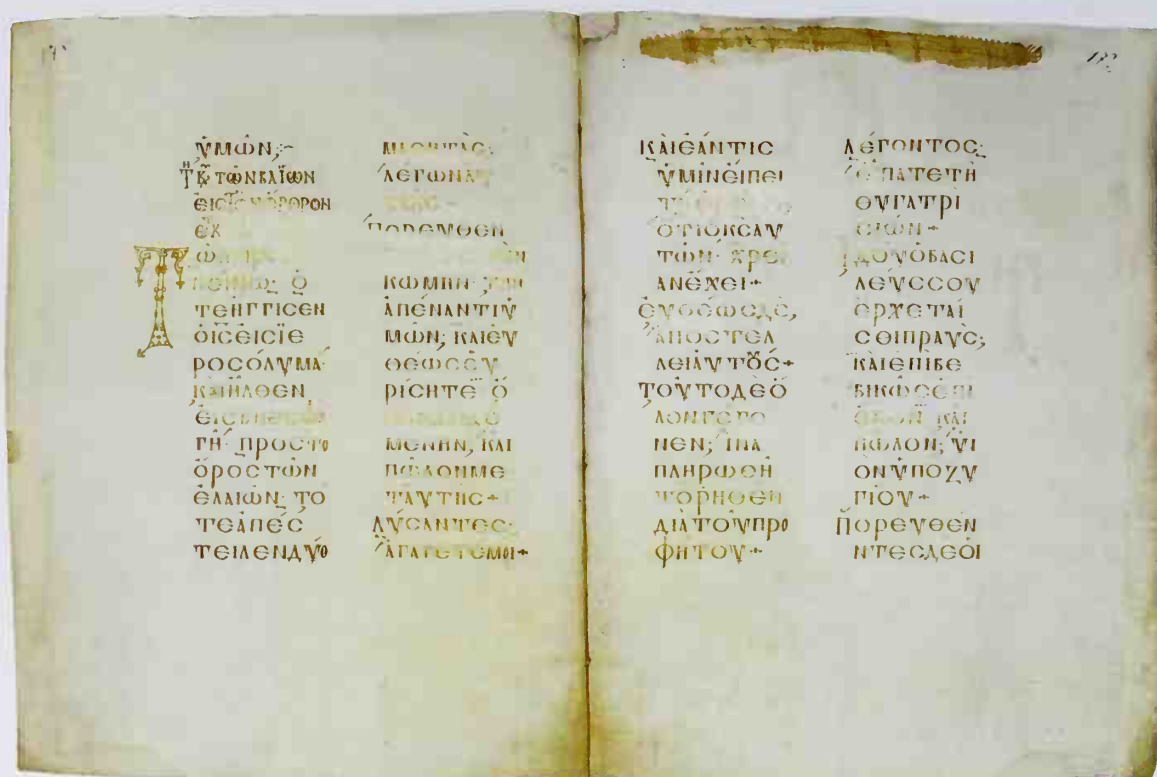 ὙΜῶΝ;
ΤΗ ΚΥ ΤῶΝ ΒΑΪΩΝ
ΟΡΘΡΟΝ
ΕΚ
Τῶ
Ὁ
ΤΕΗΓΓΙΣΕΝ
ΟἱCΕΙCΪΕ
ΡΟCΌΛΥΜΑ·
ΚΑΙΗΛΘΕΝ
ΓΗ· ΠΡΟCΤΟ
ὌΡΟCΤῶΝ
ΕΛΑΙῶΝ· ΤΟ
ΤΕΑΠΕC
ΤΕΙΛΕΝΔΥΟ
ΜΑΘΗΤΑC·
ΛΕΓΩΝΑΥ
ΠΟΡΕΥΘΕΝ
ΚΩΜΗΝ· ΤΗΝ
ἈΠΕΝΑΝΤΙΥ
ΜῶΝ; ΚΑΙΕΥ
ΘΕΩCΕΥ
ΡΙCΗΤΕ Ὁ
ΜΕΝΗΝ, ΚΑΙ
ΠῶΛΟΝΜΕ
ΤΑΥΤΗC+
ΛΥCΑΝΤΕC·
ἈΓΑΓΕΤΕΜΟΙ+
ΚΑΙΕΑΝΤΙC
ὙΜΙΝΕΙΠΕΙ
ΟΤΙΟΚCΑΥ
ΤῶΝ· ΧΡΕΙ
ΑΝΕΧΕΙ+
ΕΥΘΕΩCΔΕ,
ἈΠΟCΤΕΛ
ΛΕΙΑΥΤΟΥC+
ΤΟΥΤΟΔΕΟ
ΛΟΝΓΕΓΟ
ΝΕΝ; ἽΝΑ
ΠΛΗΡΩΘΗ
ΤΟΡΗΘΕΝ
ΔΙΑΤΟΥΠΡΟ
ΦΗΤΟΥ+
ΛΕΓΟΝΤΟC·
ΕΙΠΑΤΕΤΗ
ΘΥΓΑΤΡΙ
CΙΩΝ+
ΙΔΟΥΟΒΑCΙ
ΛΕΥCCΟΥ
ΕΡΧΕΤΑΙ
CΟΙΠΡΑΥC;
ΚΑΙΕΠΙΒΕ
ΒΙΚΩCΕΠΙ
ΟΝΟΝ ΚΑΙ
ΠῶΛΟΝ; ΥΙ
ΟΝΥΠΟΖΥ
ΓΙΟΥ+
ΠΟΡΕΥΘΕΝ
ΝΤΕCΔΕΟΙ